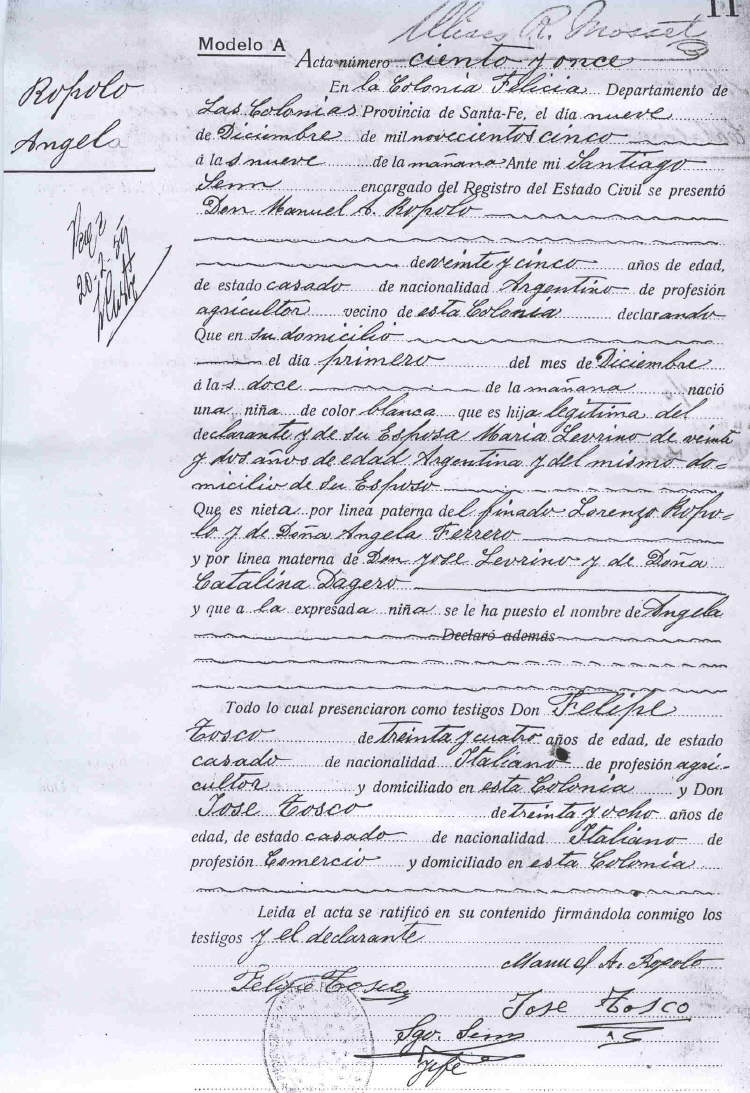 11
Ulises R. Mosset
Modelo A
Acta número ciento y once
Ropolo
Angela
En la Colonia Felicia Departamento de
Las Colonias Provincia de Santa-Fe, el día nueve
de Diciembre de mil novecientos cinco
á las nueve de la mañana Ante mi Santiago
Senn encargado del Registro del Estado Civil se presentó
Don Manuel A. Ropolo
de veinte y cinco años de edad,
de estado casado de nacionalidad Argentino de profesión
agricultor vecino de esta Colonia declarando
Que en su domicilio
el día primero del mes de Diciembre
á las doce de la mañana nació
una niña de color blanca que es hija legitima del
declarante y de su Esposa Maria Levrino de veinte
y dos años de edad Argentina y del mismo do=
micilio de su Esposo
Que es nieta por linea paterna del finado Lorenzo Ropo=
lo y de Doña Angela Ferrero
y por linea materna de Don Jose Levrino y de Doña
Catalina Dagero
y que a la expresada niña se le ha puesto el nombre de Angela
Declaró además
Todo lo cual presenciaron como testigos Don Felipe
Tosco de treinta y cuatro años de edad, de estado
casado de nacionalidad Italiano de profesión agri-
cultor y domiciliado en esta Colonia y Don
Jose Tosco de treinta y ocho años de
edad, de estado casado de nacionalidad Italiano de
profesión Comercio y domiciliado en esta Colonia
Leida el acta se ratificó en su contenido firmándola conmigo los
testigos y el declarante
Manuel A. Ropolo
Felipe Tosco
Jose Tosco
Sgo. Senn
Jefe